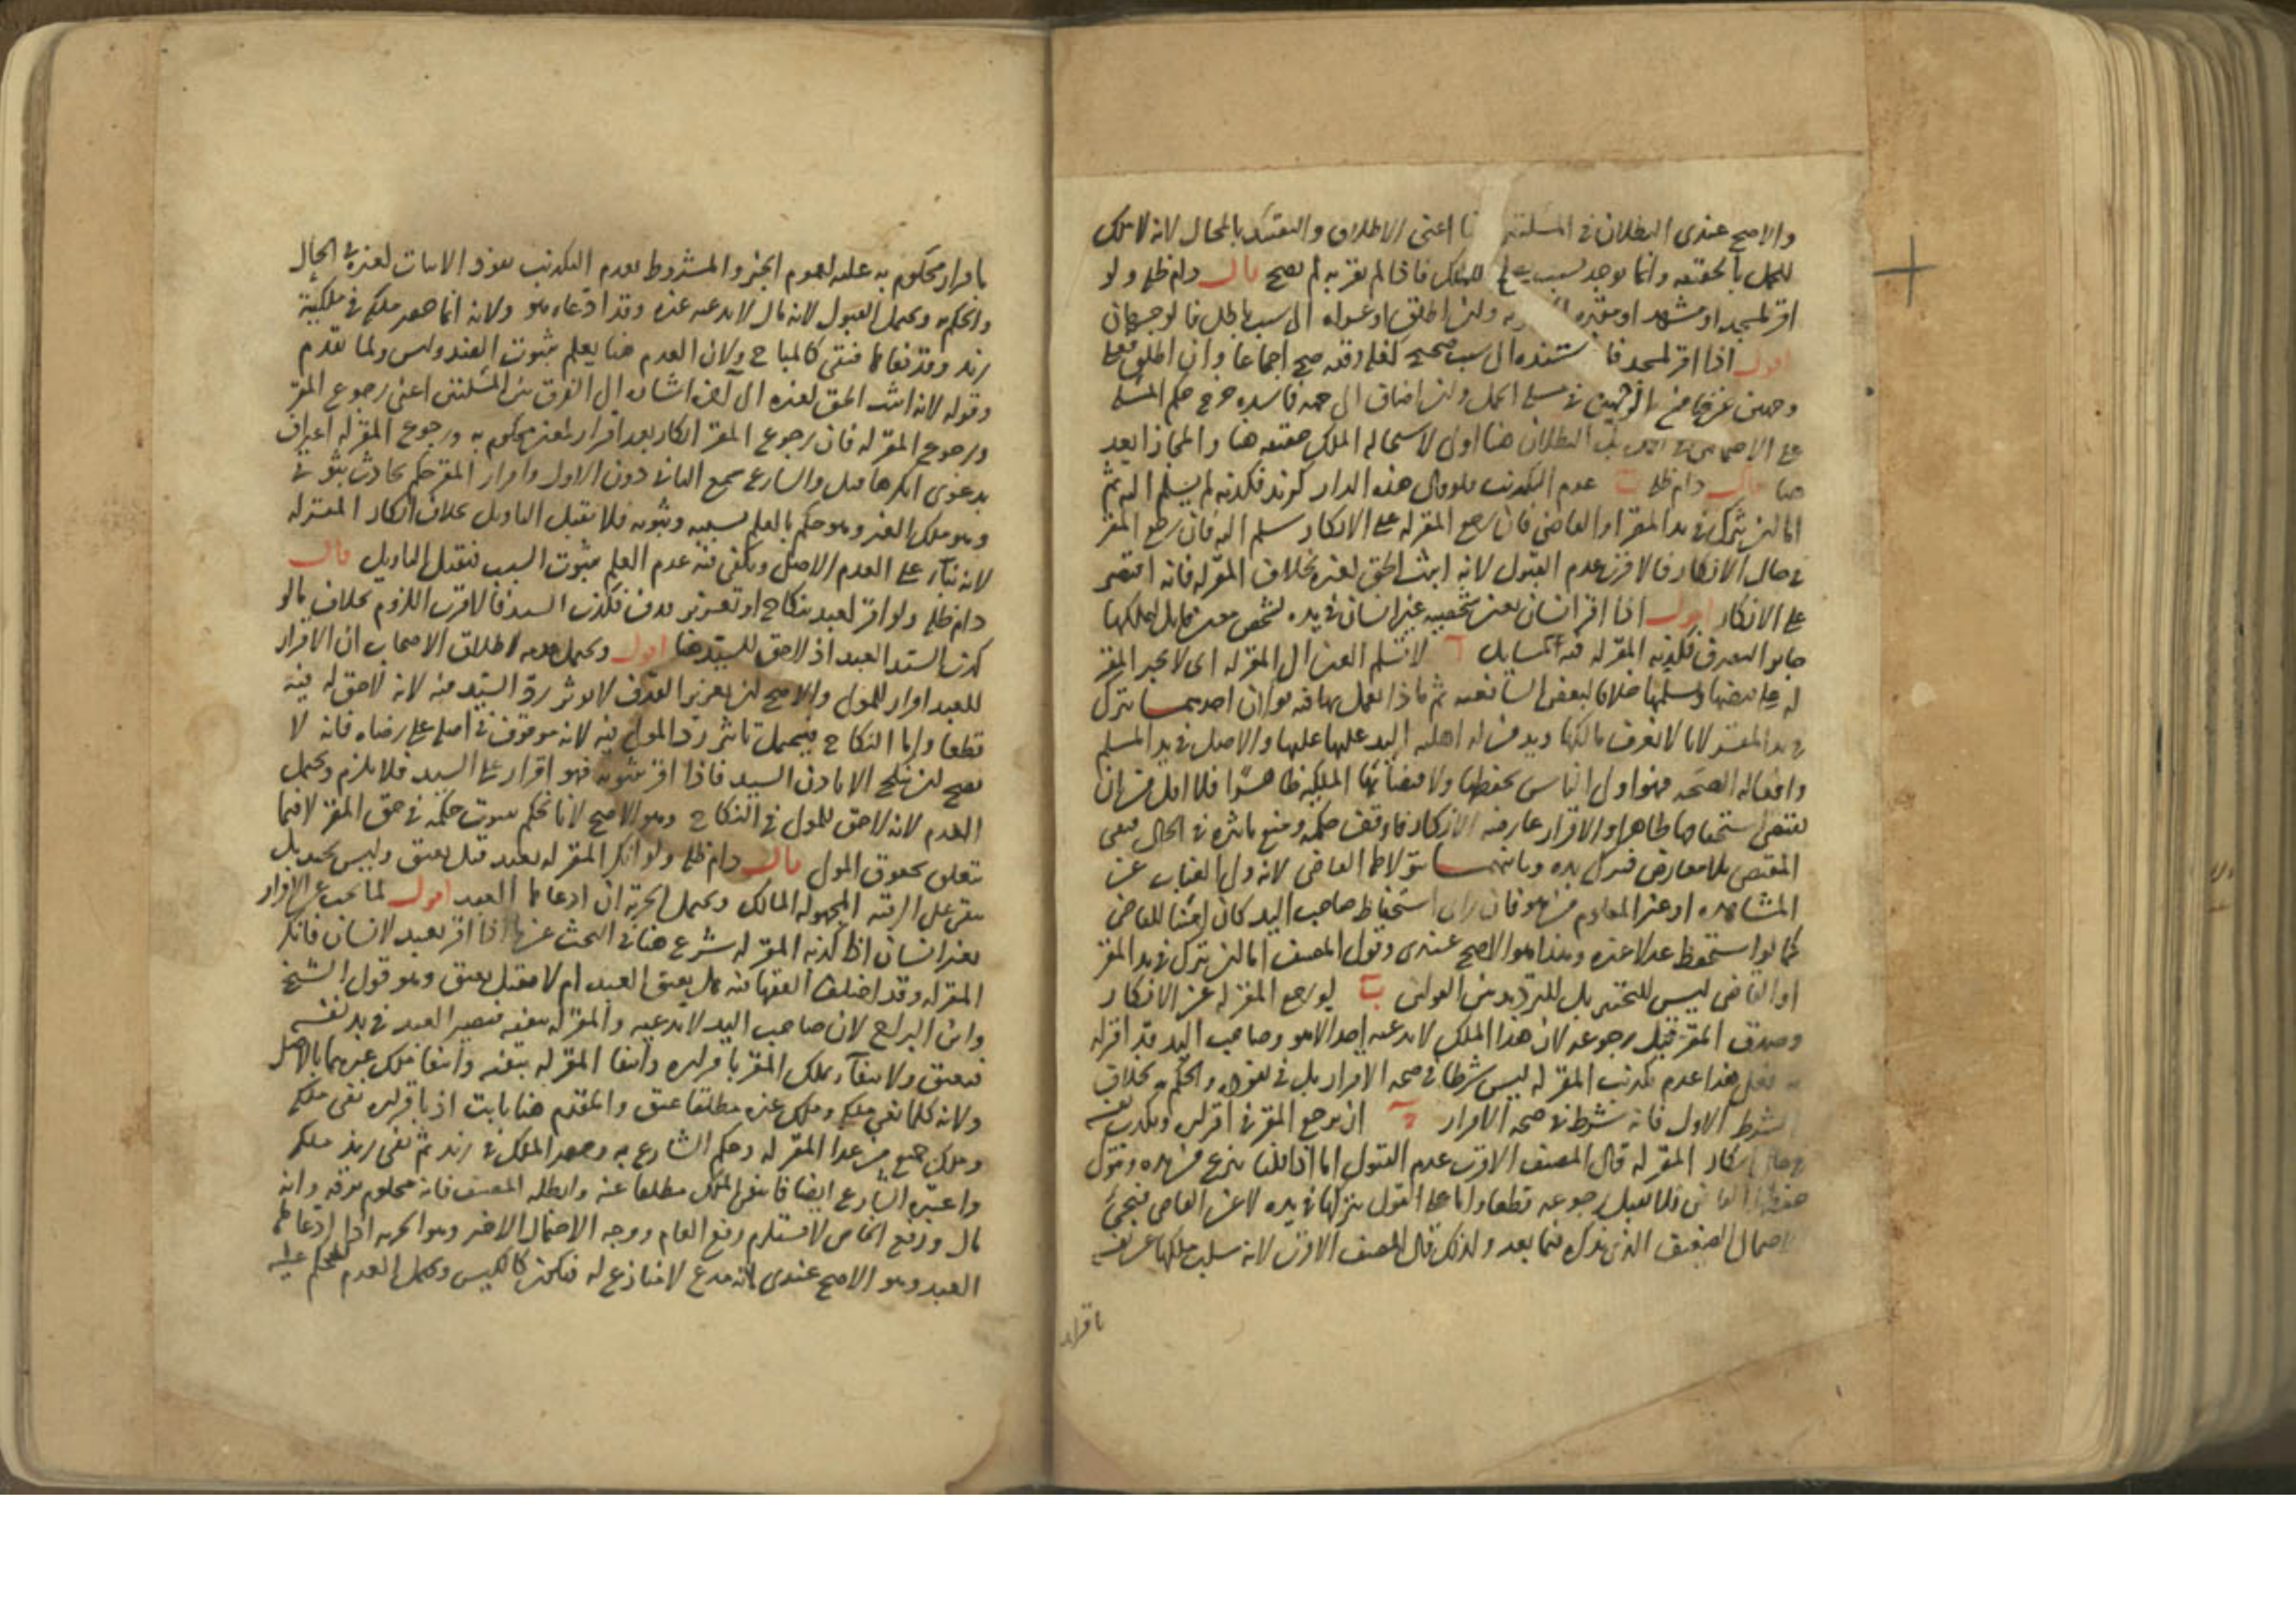 والاصح عندى البطلان فى المسئلتين اعنى الاطلاق والتقييد بالمحال لانه لا ملك
للحمل بالحقيقه وانما يوجد لسبب للملك فاذا لم يقر به لم يصح قال دام ظله ولو
اقر لمسجد او مشهد او مقبره ولن اطلق او عزاه الى سبب باطل فالوجهان
اقول اذا اقر لمسجد فا ستنده الى سبب صحيح كغله وقفه صح اجماعا وان اطلق فعلى
وجهين فى مسئله الحمل ولن اضاف الى جهه فاسده خرج حكم المسئله
على البطلان هنا اولى لاستحاله الملك حقيقه هنا والمجاز ابعد
هنا قال دام ظله ب عدم التكذيب فلو قال هذه الدار لزيد فكذبه لم يسلم اليه ثم
اما لن يترك فى يد المقر او القاضى فان رجع المقر له على الانكار سلم اليه فان رجع المقر
فى حال الانكار فالاقرب عدم القبول لانه اثبت الحق لغيره بخلاف المقر له فانه اقتصر
على الانكار اقول اذا اقر انسان بعين غير انسان فى يده لشخص معين قابل لملكها
جايز التصرف فكذبه المقر له ففيه مسايل ا لا تسلم العين الى المقر له اى لا يجبر المقر
له على قبضها وتسلمها خلافا لبعض الشافعيه ثم ماذا يعمل بها فيه قولان احدهمــا يترك
فى يد المقر لانا لا نعرف مالكها ويد من له اهليه اليد عليها والاصل فى يد المسلم
وافعاله الصحه فهو اولى الناس بحفظها ولاقتضائها الملكيه ظاهرا فلا اقل من ان
يقتضى استحقاقها ظاهرا والاقرار عارضه الانكار فاوقف حكمه ومنع تاثيره فى الحال فبقى
المقتضى بلا معارض فيترك بيده وثانيهمــا يتولاها القاضى لانه ولى الغياب عن
المشاهده او عن المعلوم من هو فان راى استحفاظ صاحب اليد كان امينا للقاضى
كما لو استحفظ عدلا غيره وهذا هو الاصح عندى وقول المصنف اما لن يترك فى يد المقر
او القاضى ليس للتخيير بل للترديد بين القولين ب لو رجع المقر له عن الانكار
وصدق المقر قبل رجوعه لان هذا الملك لا يدعيه احد الا هو وصاحب اليد قد اقر له
به فعلى هذا عدم تكذيب المقر له ليس شرطا فى صحه الاقرار بل فى نفوذه والحكم به بخلاف
الشرط الاول فانه شرط فى صحه الاقرار ج ان يرجع المقر فى اقراره ويكذب نفسه
فى حال انكار المقر له قال المصنف الاقرب عدم القبول اما اذا قلنا ينزع من يده ويتولى
حفظها القاضى فلا يقبل رجوعه قطعا واما على القول بتركها فى يده لا عن القاضى فيجئ
الاحتمال الضعيف الذى نذكره فيما بعد ولذلك قال المصنف الاقرب لانه سلب ملكها عن نفسه
باقراره
باقرار محكوم به عليه لعموم الخبر والمشروط بعدم التكذيب نفوذ الاثبات لغيره فى الحال
والحكم به ويحتمل القبول لانه مال لا يدعيه غيره وقد ادعاه هو ولانه انما حصر ملكه فى ملكية
زيد وقد نفاها فبقى كالمباح ولان العدم هنا يعلم بثبوت الضد وليس ولما تقدم
وقوله لانه اثبت الحق لغيره الى آخره اشاره الى الفرق بين المسئلتين اعنى رجوع المقر
ورجوع المقر له فان رجوع المقر انكار بعد اقرار لمعين محكوم به ورجوع المقر له اعتراف
بدعوى انكرها قبل والشارع سمع الثانى دون الاول واقرار المقر حكم بحادث
وهو ملك الغير وهو حكم بالعلم بسببه وثبوته فلا يقبل التاويل بخلاف انكار المقر له
لانه بناء على العدم الاصلى ويكفى فيه عدم العلم بثبوت السبب فيقبل التاويل قال
دام ظله ولو اقر لعبد بنكاح او تعزير قذف فكذب السيد فالاقرب اللزوم بخلاف ما لو
كذب السيد العبد اذ لا حق للسيد هنا اقول ويحتمل عدمه لاطلاق الاصحاب ان الاقرار
للعبد اقرار للمولى والاصح لن تعزير القذف لا يوثر رد السيد فيه لانه لا حق له فيه
قطعا واما النكاح فيحتمل تاثير رد المولى فيه لانه موقوف فى اصله على رضاه فانه لا
يصح لن ينكح الا باذن السيد فاذا اقر بثبوته فهو اقرار على السيد فلا يلزم ويحتمل
العدم لانه لا حق للمولى فى النكاح وهو الاصح لانا نحكم بثبوت حكمه فى حق المقر لا فيما
يتعلق بحقوق المولى قال دام ظله ولو انكر المقر له بعبد قيل يعتق وليس بجيد بل
يبقى على الرقيه المجهوله المالك ويحتمل الحرية ان ادعاها العبد اقول لما بحث عن الاقرار
بعين لانسان اذا كذبه المقر له شرع هنا فى البحث عن ما اذا اقر بعبد لانسان فانكر
المقر له وقد اختلف الفقها فيه هل يعتق العبد ام لا فقيل يعتق وهو قول الشيخ
وابن البراج لان صاحب اليد لا يدعيه والمقر له ينفيه فيصير العبد فى يد نفسه
فيعتق ولانتفآء ملك المقر باقراره وانتفا المقر له بنفيه وانتفا ملك غيرهما بالاصل
ولانه كلما نفى ملكه وملك غيره مطلقا عتق والمقدم هنا ثابت اذ باقراره نفى ملكه
وملك جميع من عدا المقر له وحكم الشارع به وحصر الملك فى زيد ثم نفى زيد ملكه
واعتبره الشارع ايضا فانتفى الملك مطلقا عنه وابطله المصنف فانه محكوم برقه وانه
مال ورفع الخاص لا يستلزم رفع العام ووجه الاحتمال الاخير وهو الحريه اذا ادعاها
العبد وهو الاصح عندى لانه مدع لا منازع له فيكون كالكيس ويحتمل العدم للحكم عليه